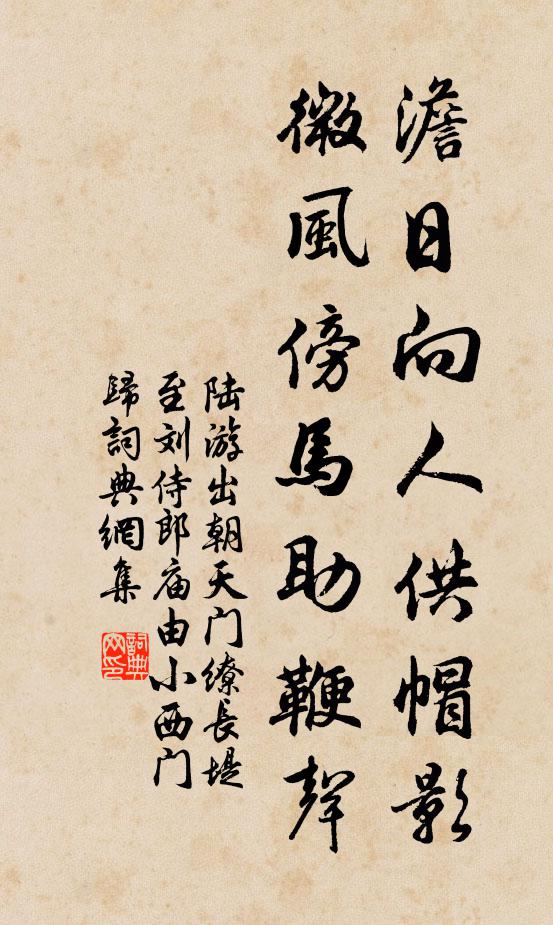 澹日向人供帽影
微風傍馬助鞭聲
陆游出朝天门缭長堤
至刘侍郎庙由小西门
歸詞典網集
詞典
网印